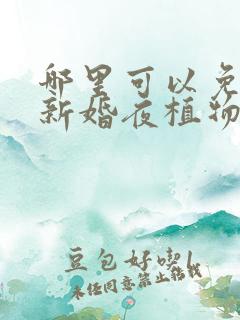 哪里可以免
新婚夜植物
豆包好喫|
未经同意禁止转载